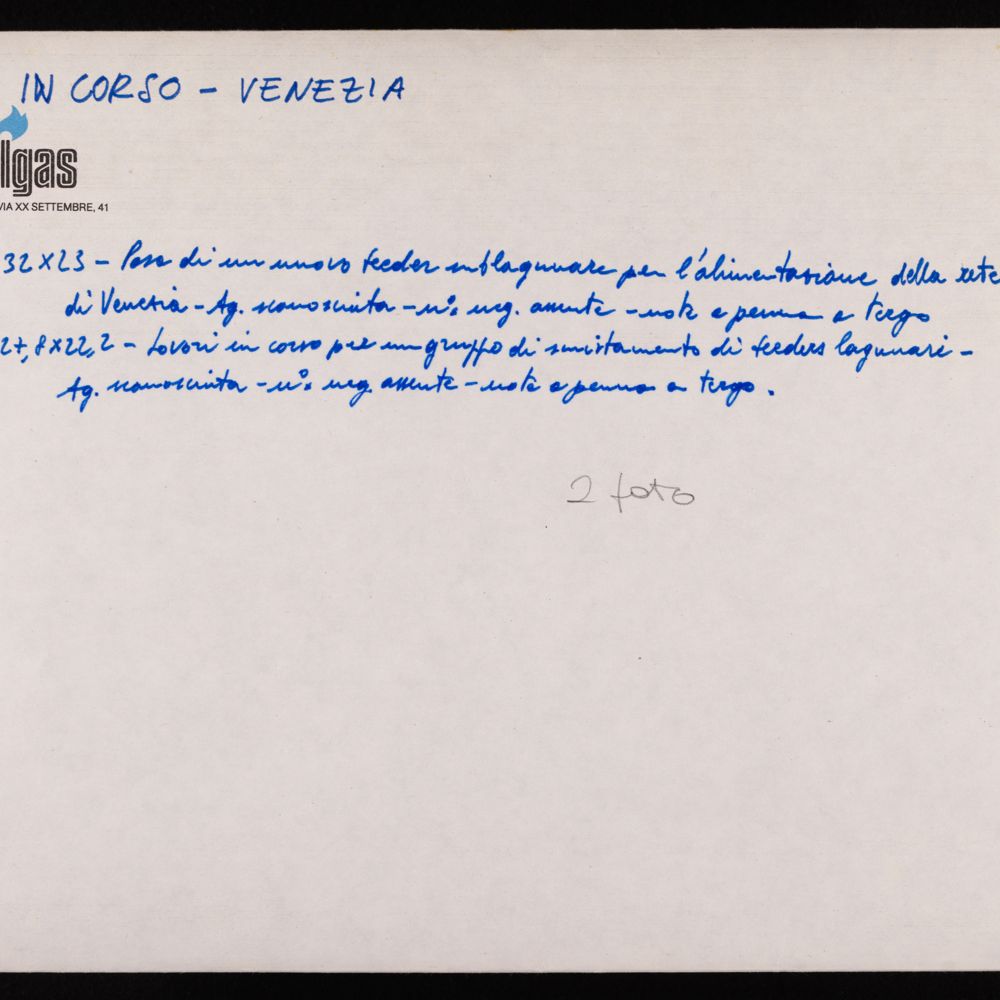 IN CORSO - VENEZIA
lgas
VIA XX SETTEMBRE, 41
32X23 - Posa di un nuovo feeder sublagunare per l'alimentazione della rete
di Venezia - Ag. sconosciuta - n° neg. assente - note a penna a tergo
27,8X22,2 - Lavori in corso per un gruppo di smistamento di feeders lagunari -
Ag. sconosciuta - n° neg. assente - note a penna a tergo.
2 foto